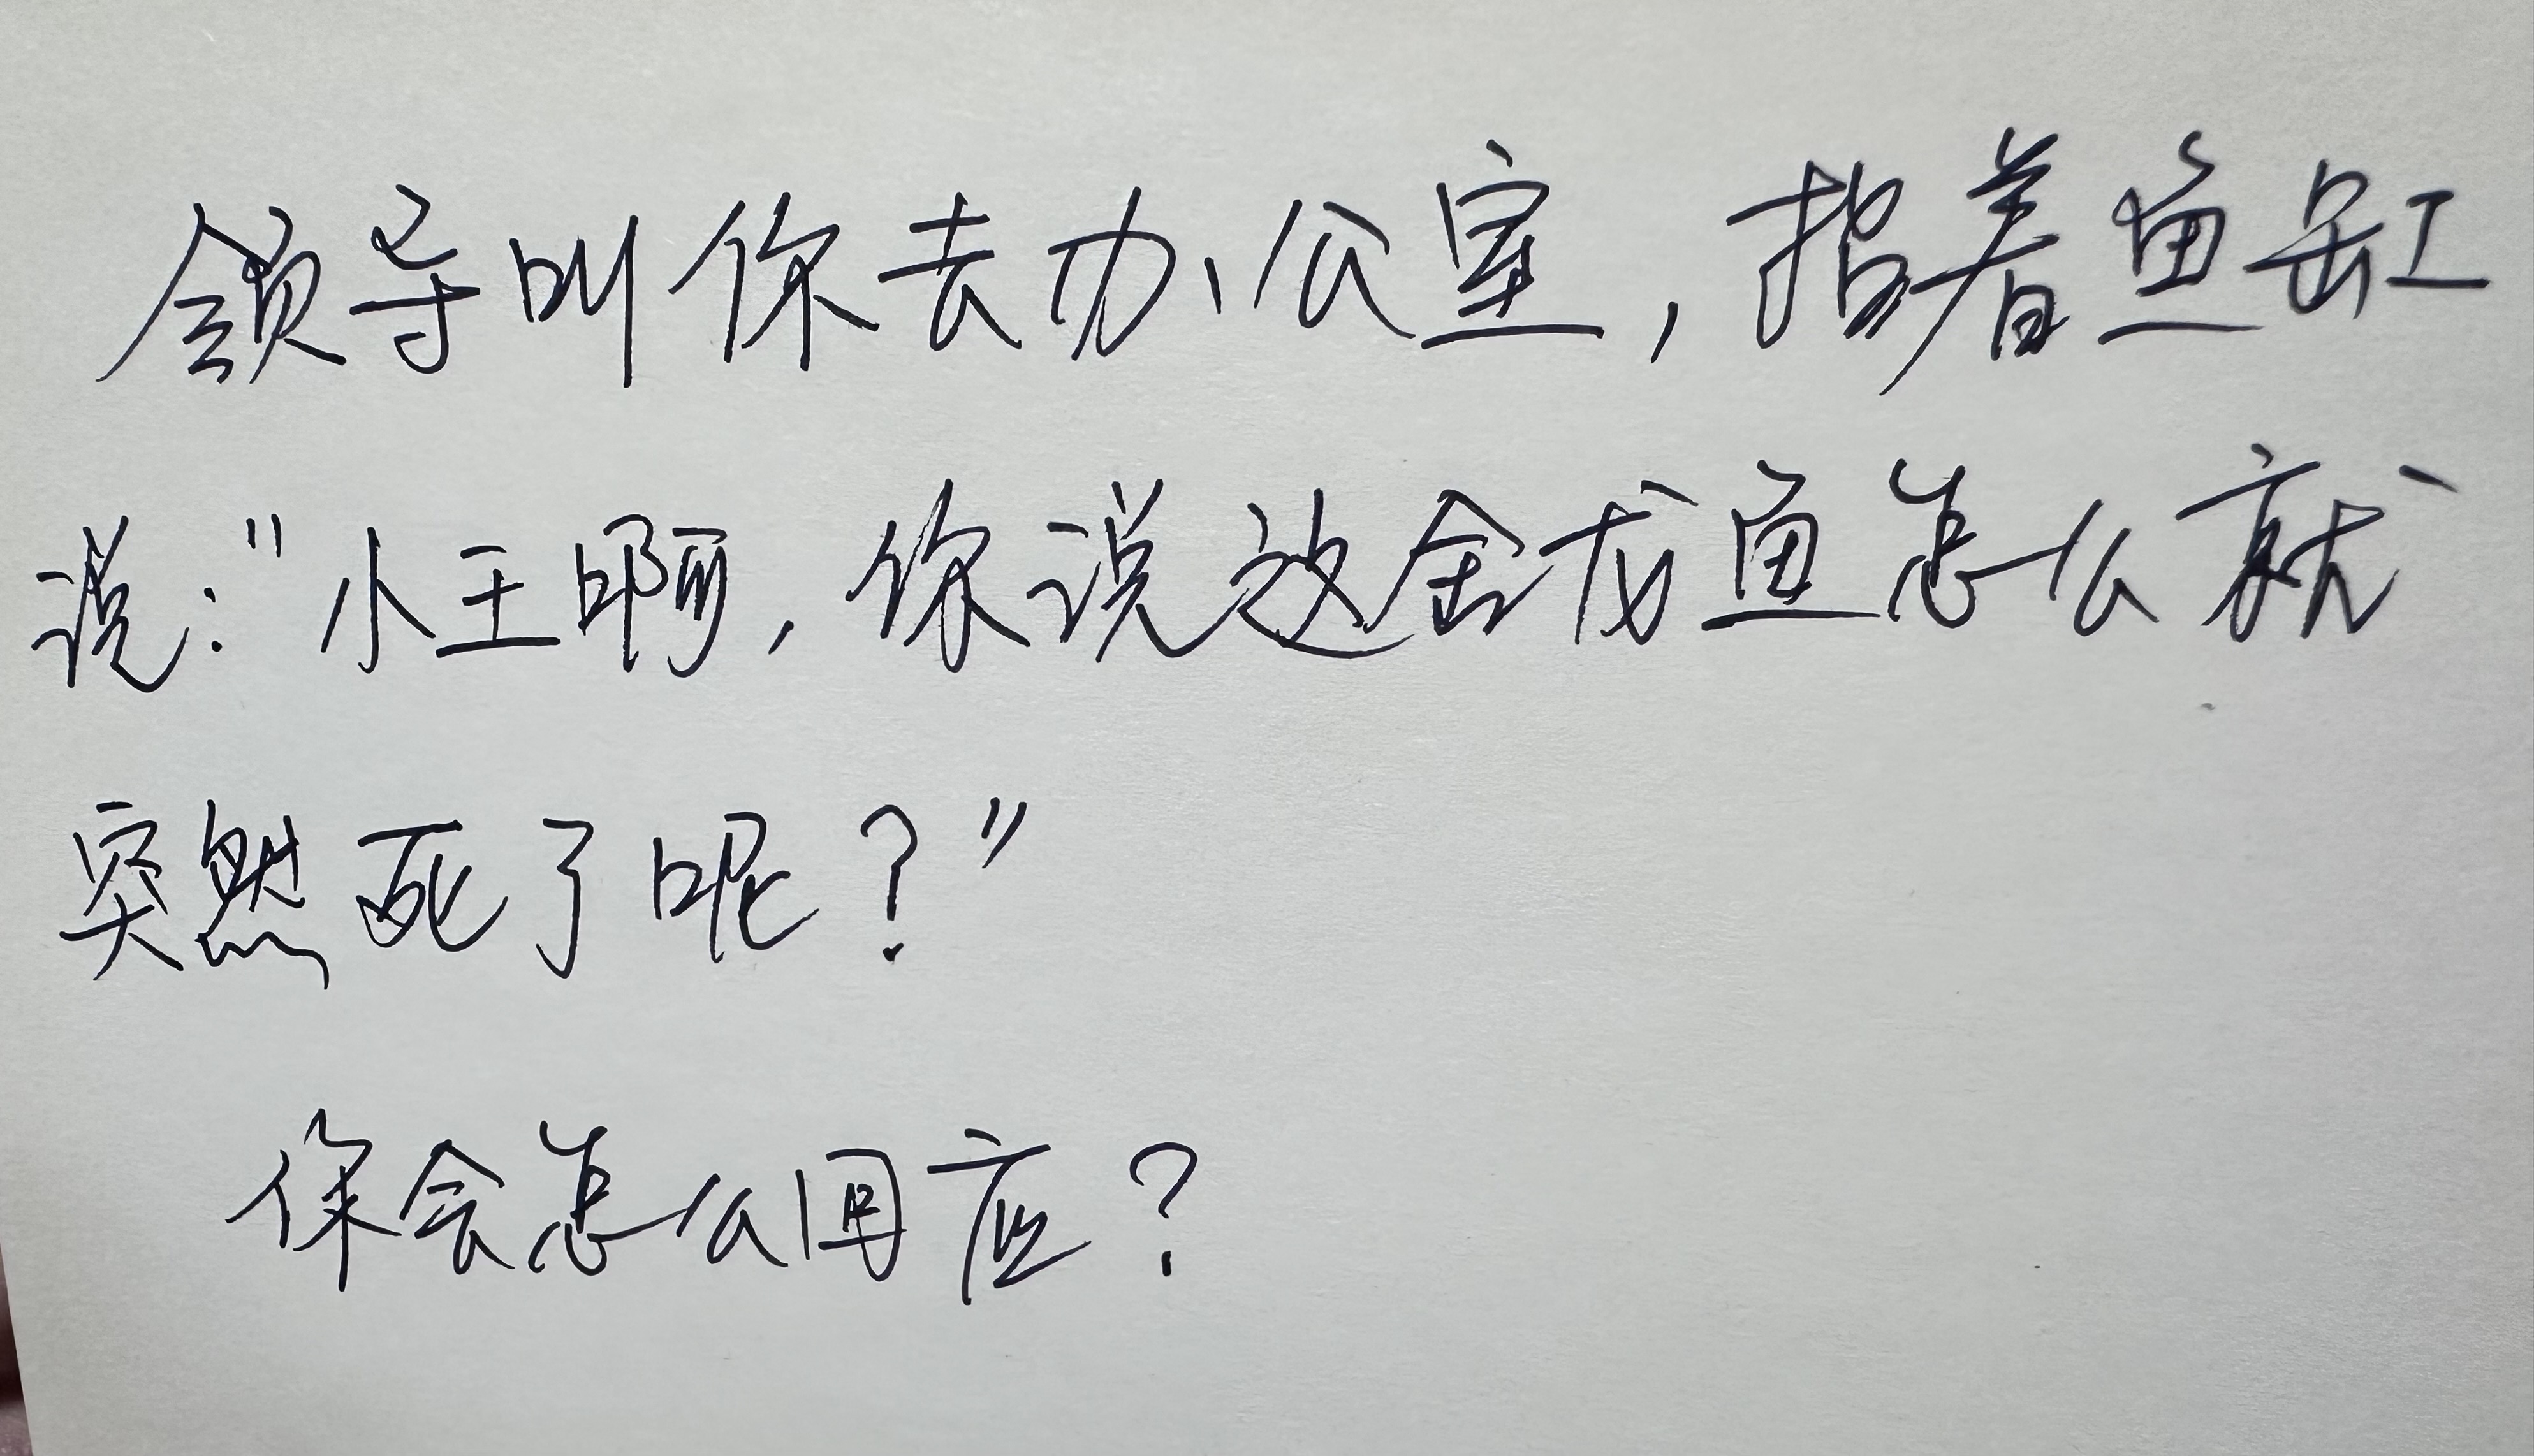 领导叫你去办公室，指着鱼缸
说："小王啊，你说这金龙鱼怎么就
突然死了呢？"
你会怎么回应？